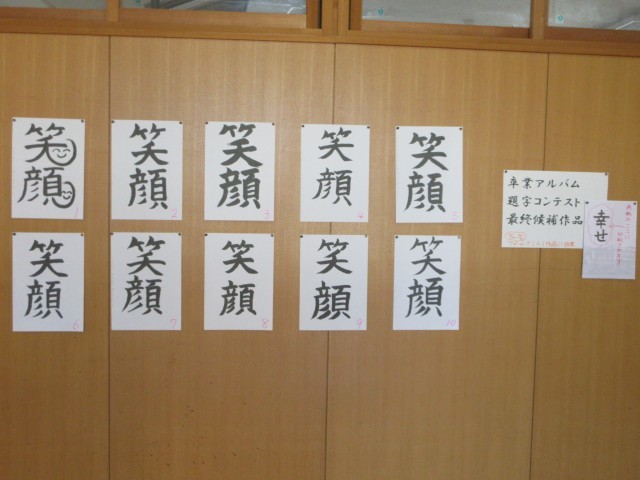 笑顔
1
笑顔
2
笑顔
3
笑顔
4
笑顔
5
笑顔
6
笑顔
7
笑顔
8
笑顔
9
笑顔
10
卒業アルバム
題字コンテスト
最終候補作品
幸せ